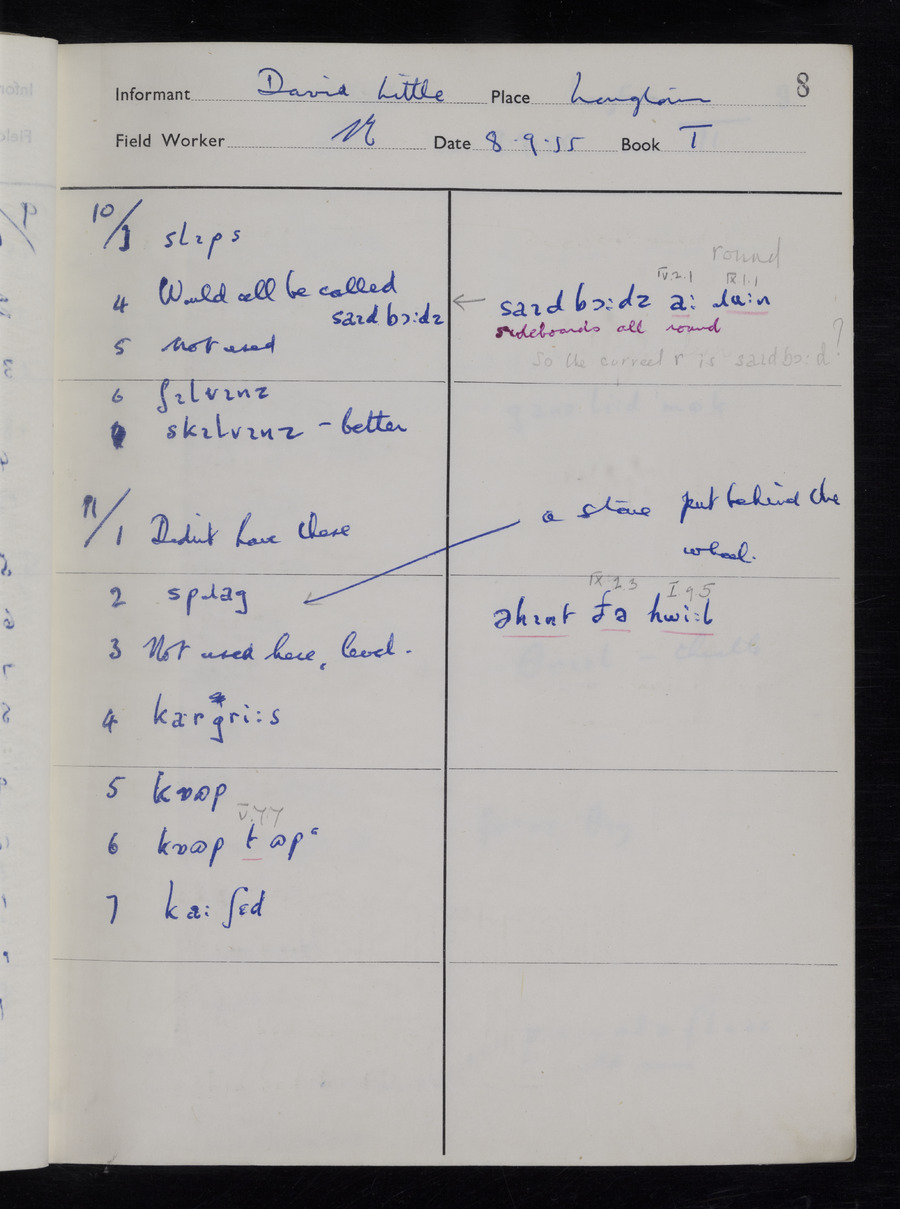 8
Informant David Little Place Longtown
Field Worker Date 8.9.55 Book I
10/3 slɪps
4 Would all be called
saɪdbɔ:dz
5 Not used
6 ʃɪlvɪnz
skɪlvɪnz - better
11/1 Didn't have these
2 spɹag
3 Not used here, level.
4 kargri:s
5 kɒəp
V.7.7
6 kɒəp t əpᵃ
7 ka: ʃɛd
round
IV.2.1 IX.1.1
← saɪdbɔ:dz a: ɹu:n
sideboards all round
So the correct r is saɪdbɔ:d?
a stone put behind the
wheel.
IX.2.3 I 9 5
əhɪnt ðə hwi:l